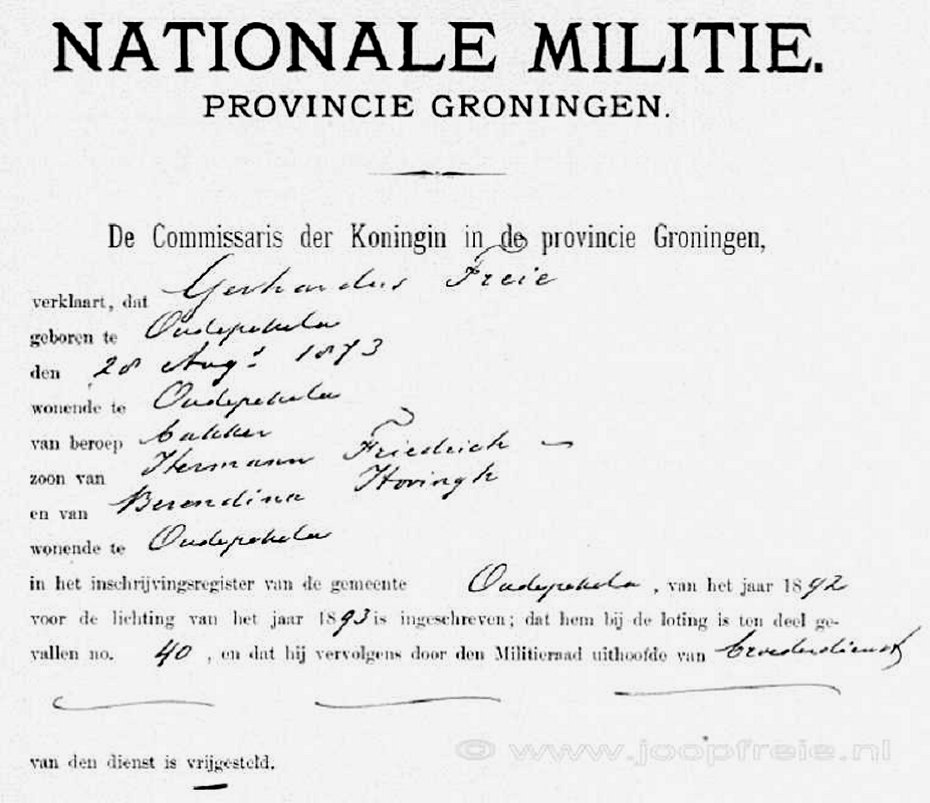 NATIONALE MILITIE.
PROVINCIE GRONINGEN.
De Commissaris der Koningin in de provincie Groningen,
verklaart, dat Gerhardus Freie
geboren te Oudepekela
den 28 Aug.s 1873
wonende te Oudepekela
van beroep bakker
zoon van Hermann Friedrich
en van Berendina Hovingh
wonende te Oudepekela
in het inschrijvingsregister van de gemeente Oudepekela, van het jaar 1892
voor de lichting van het jaar 1893 is ingeschreven; dat hem bij de loting is ten deel ge-
vallen no. 40, en dat hij vervolgens door den Militieraad uithoofde van broederdienst
van den dienst is vrijgesteld.
© www.joopfreie.nl